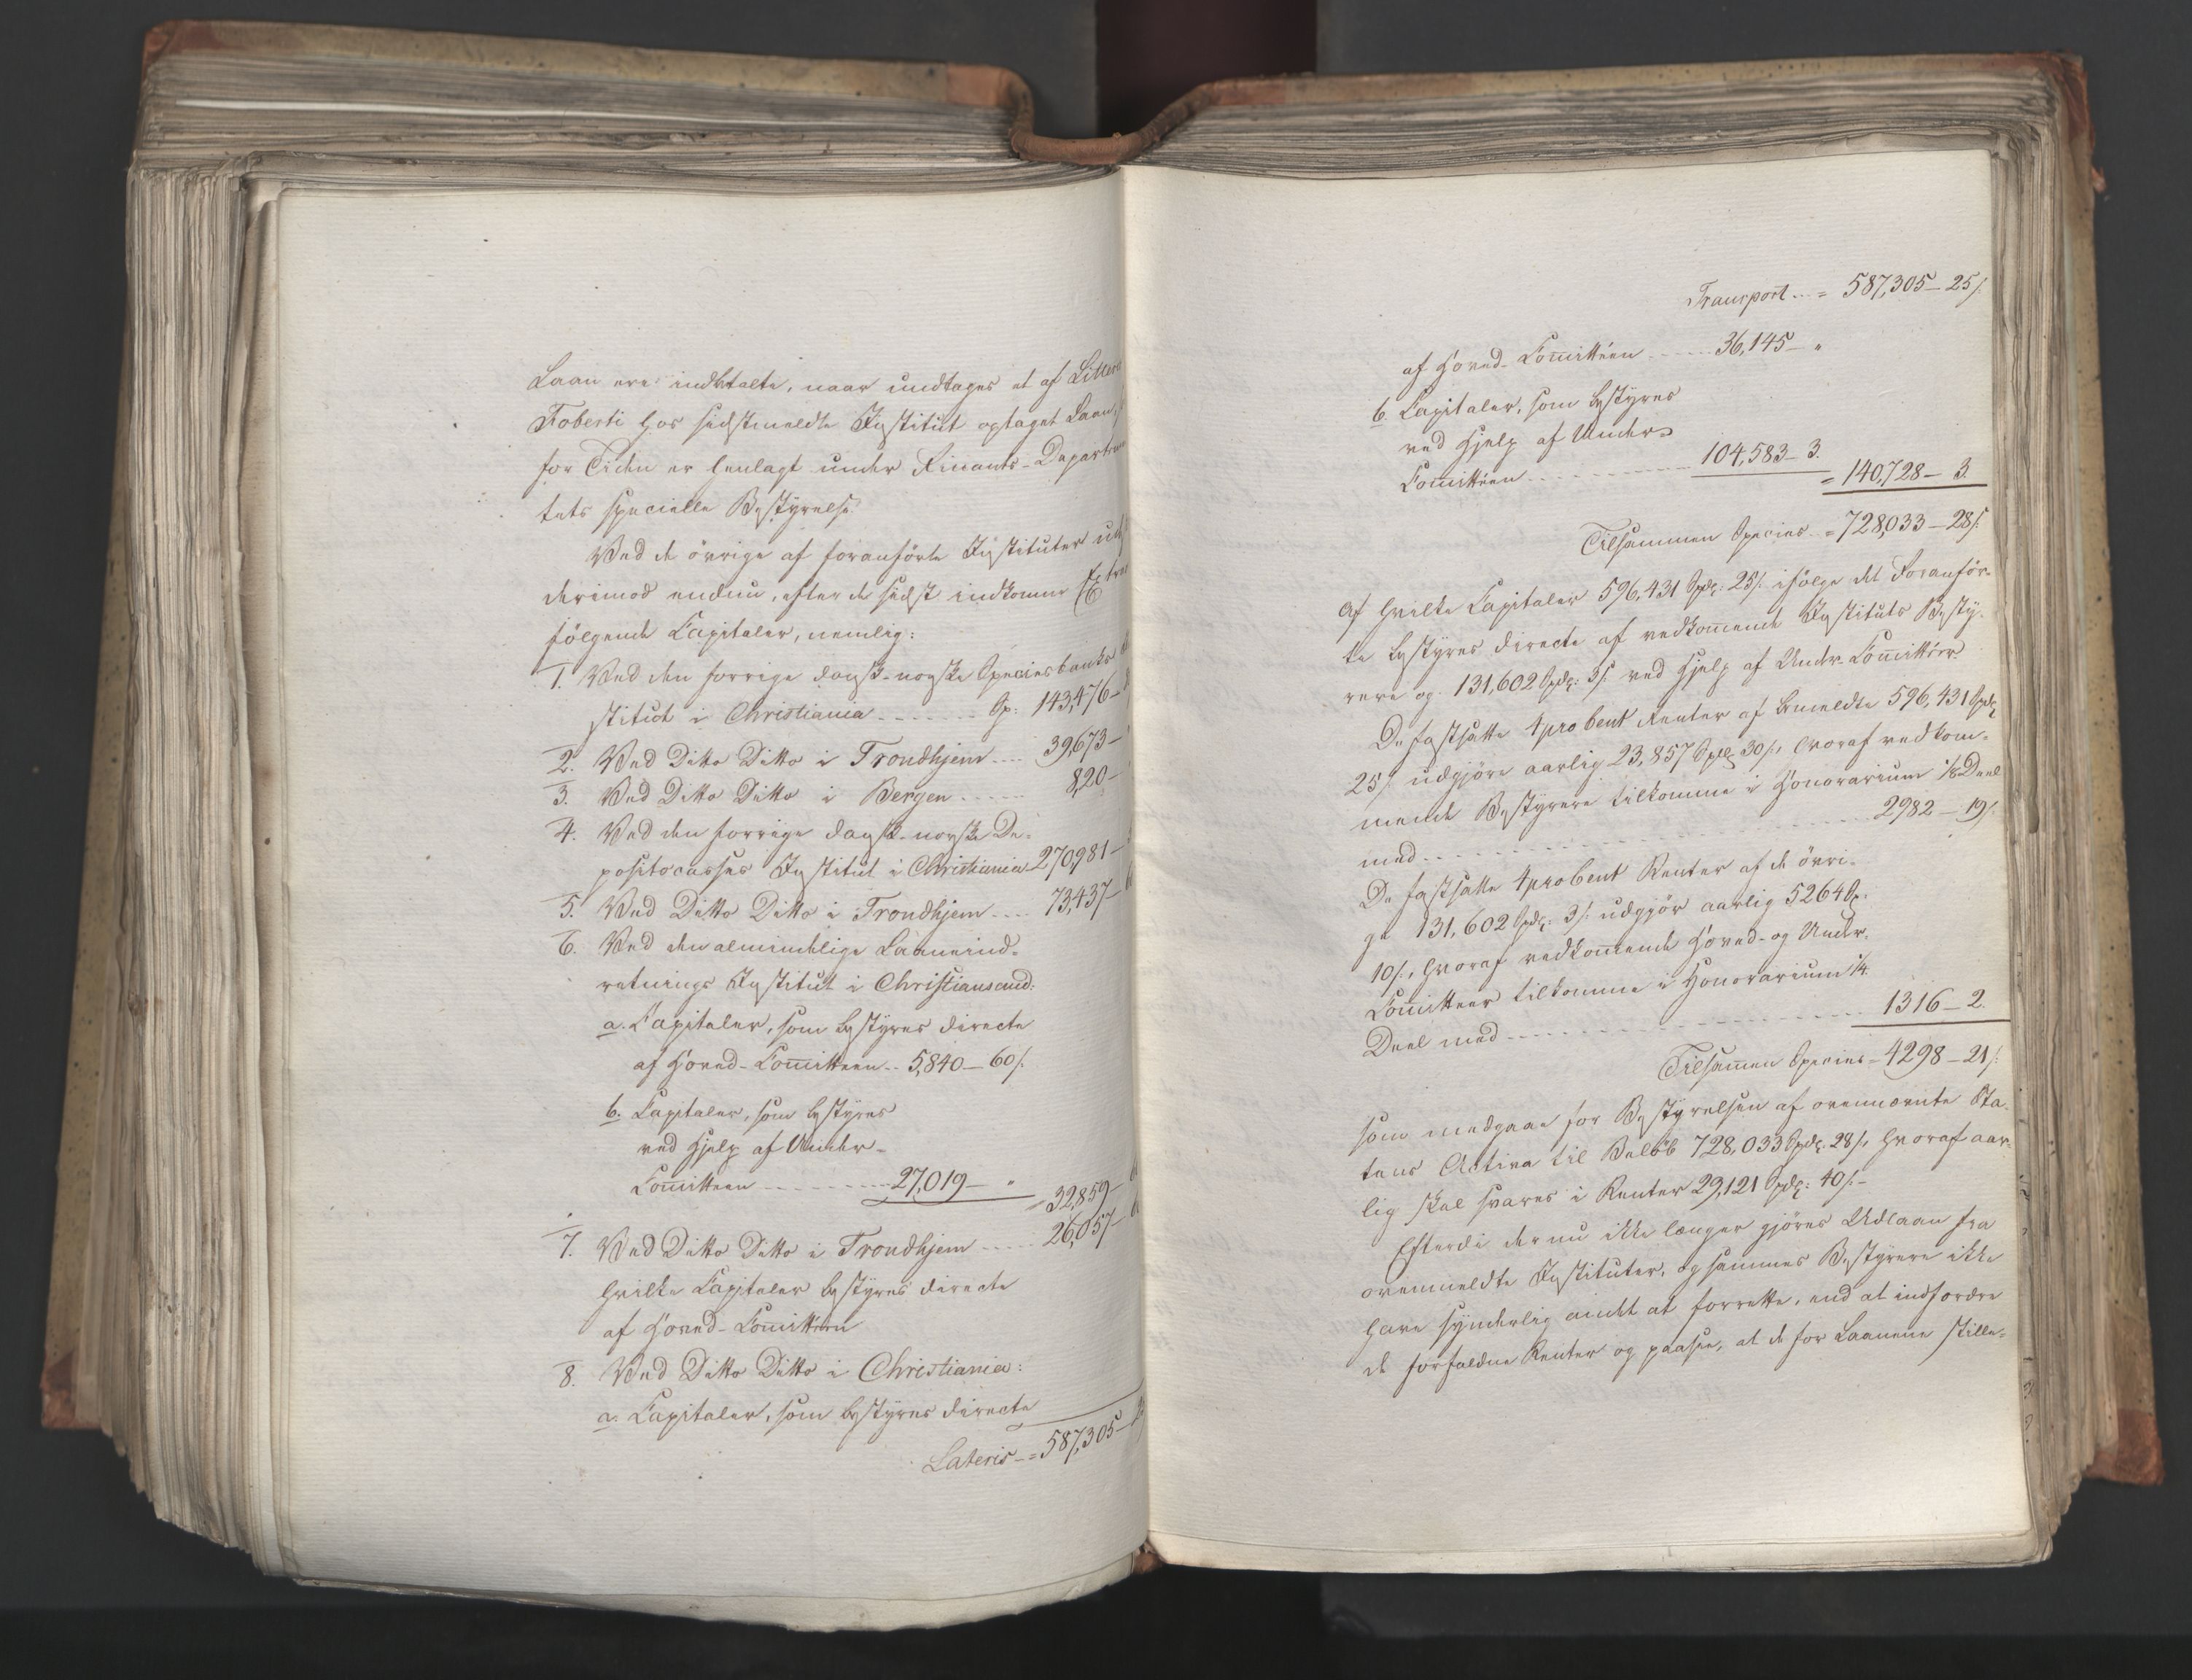 Laan ere indbtalte, naar undtages et af
Foberti hos sidstmeldte Institut optaget Laan,
for Tiden er henlagt under Finants-Departem
tets specielle Bestyrelse.
Ved de övrige af foranförte Instituter
derimod endnu, efter de sidst indkomne Extra
fölgende Capitaler, nemlig:
1. Ved den forrige dansk-norske Speciesbanks
stitut i Christiania Sp: 143,476-
2. Ved Ditto Ditto i Trondhjem 39,673-
3. Ved Ditto Ditto i Bergen 820-
4. Ved den forrige dansk-norske De-
positocasses Institut i Christiania 270,981-
5. Ved Ditto Ditto i Trondhjem 73,437-
6. Ved den almindelige Laaneind-
retnings Institut i Christiansand:
a. Capitaler, som bestyres directe
af Hoved-Comitteen 5,840-60/:
b. Capitaler, som bestyres
ved Hjelp af Under-
Comitteen 27,019- "
= 32,859-
7. Ved Ditto Ditto i Trondhjem 26,057-
hvilke Capitaler bestyres directe
af Hoved-Comitteen
8. Ved Ditto Ditto i Christiania:
a. Capitaler, som bestyres directe
Lateris = 587,305-
Transport = 587,305-25/:
af Hoved-Comittéen 36,145- "
b. Capitaler, som bestyres
ved Hjelp af Under-
Comittéen 104,583-3.
= 140,728-3.
Tilsammen Species = 728,033-28/:
Af hvilke Capitaler 596,431 Spd: 25/: ifölge det Foranför-
te bestyres directe af vedkomende Instituts Besty-
rere og 131,602 Spd: 3/: ved Hjelp af Under-Comittéer.
De fastsatte 4 pro Cent Renter af bemeldte 596,431 Spd:
25/: udgjöre aarlig 23,857 Spd: 30/:, hvoraf vedkom-
mende Bestyrere tilkomme i Honorarium 1/8 Deel
med 2982-19/:
De fastsatte 4 pro Cent Renter af de övri-
ge 131,602 Spd: 3/: udgjör aarlig 5264 Sp:
10/:, hvoraf vedkomende Hoved- og Under-
Comitteer tilkomme i Honorarium 1/4
Deel med 1316-2.
Tilsamen Species = 4298-21/:
som medgaae for Bestyrelsen af ovennævnte Sta-
tens Activa til Belöb 728,033 Spd: 28/:, hvoraf aar-
lig skal svares i Renter 29,121 Spd: 40/:-
Efterdi der nu ikke længer gjöres Udlaan fra
ovenmeldte Instituter, og sammes Bestyrere ikke
have synderlig andet at forrette, end at indfordre
de forfaldne Renter og paasee, at de for Laanene stille-